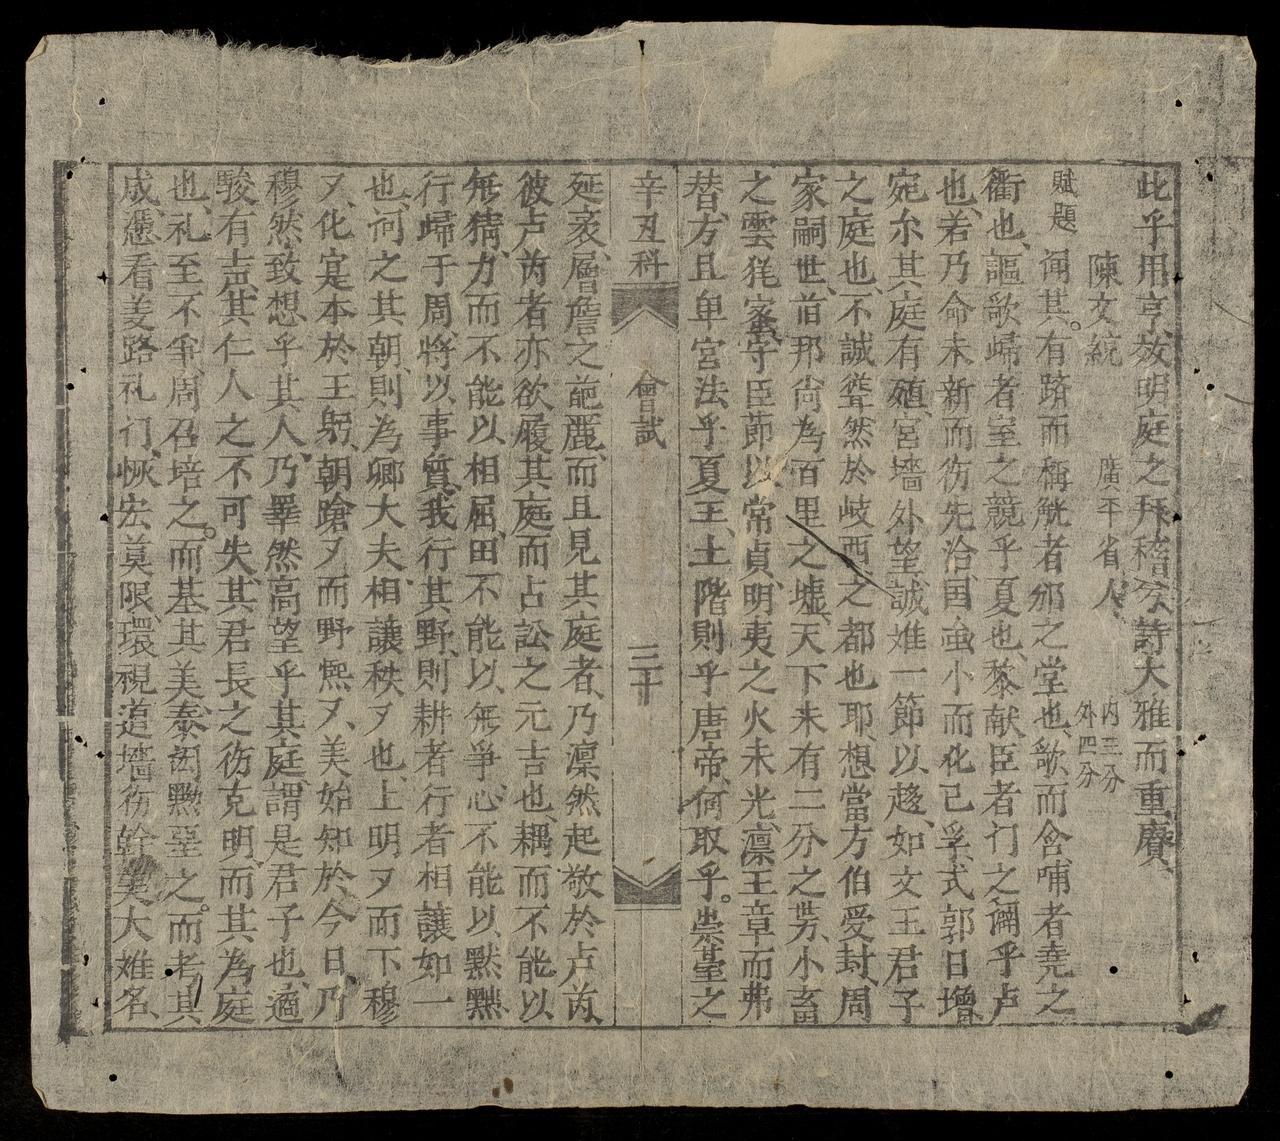 此乎用亨故明庭之拜稽分詩大雅而重賡
陳文統 廣平省人 内三分 外四分
賦題 閫其有躋而稱觥者邠之堂也歌而含哺者堯之
衢也謳歌歸者室之競乎夏也黎献臣者门之闢乎卢
也若乃命未新而伤先洽囯䖝小而化己孚式郭日增
宛尒其庭有殖宫墙外望誠难一節以趍如文王君子
之庭也不誠聳然於岐西之都也耶想當方伯受封周
家嗣世首邦尙為百里之墟天下未有二分之势小畜
之雲犹家宇臣節以常貞明夷之火未光凛王章而弗
替方且卑宫法乎夏王土階則乎唐帝何取乎崇臺之
辛丑科 會試 三十
延袤層簷之葩麗而且見其庭者乃凛然起敬於卢芮
彼卢芮者亦欲履其庭而占訟之元吉也耦而不能以
無猜力而不能以相屈田不能以無爭心不能以黙黙
行歸于周將以事質我行其野則耕者行者相讓如一
也何之其朝則為卿大夫相讓秩〻也上明〻而下穆
〻化寔本於王躬朝蹌〻而野熙〻美始知於今日乃
穆然致想乎其人乃睪然高望乎其庭謂是君子也適
駿有声其仁人之不可失其君長之伤克明而其為庭
也礼至不争周召培之而基其美泰闳黝堊之而考其
成慿看姜路礼门恢宏莫限環視道墙伤幹美大难名